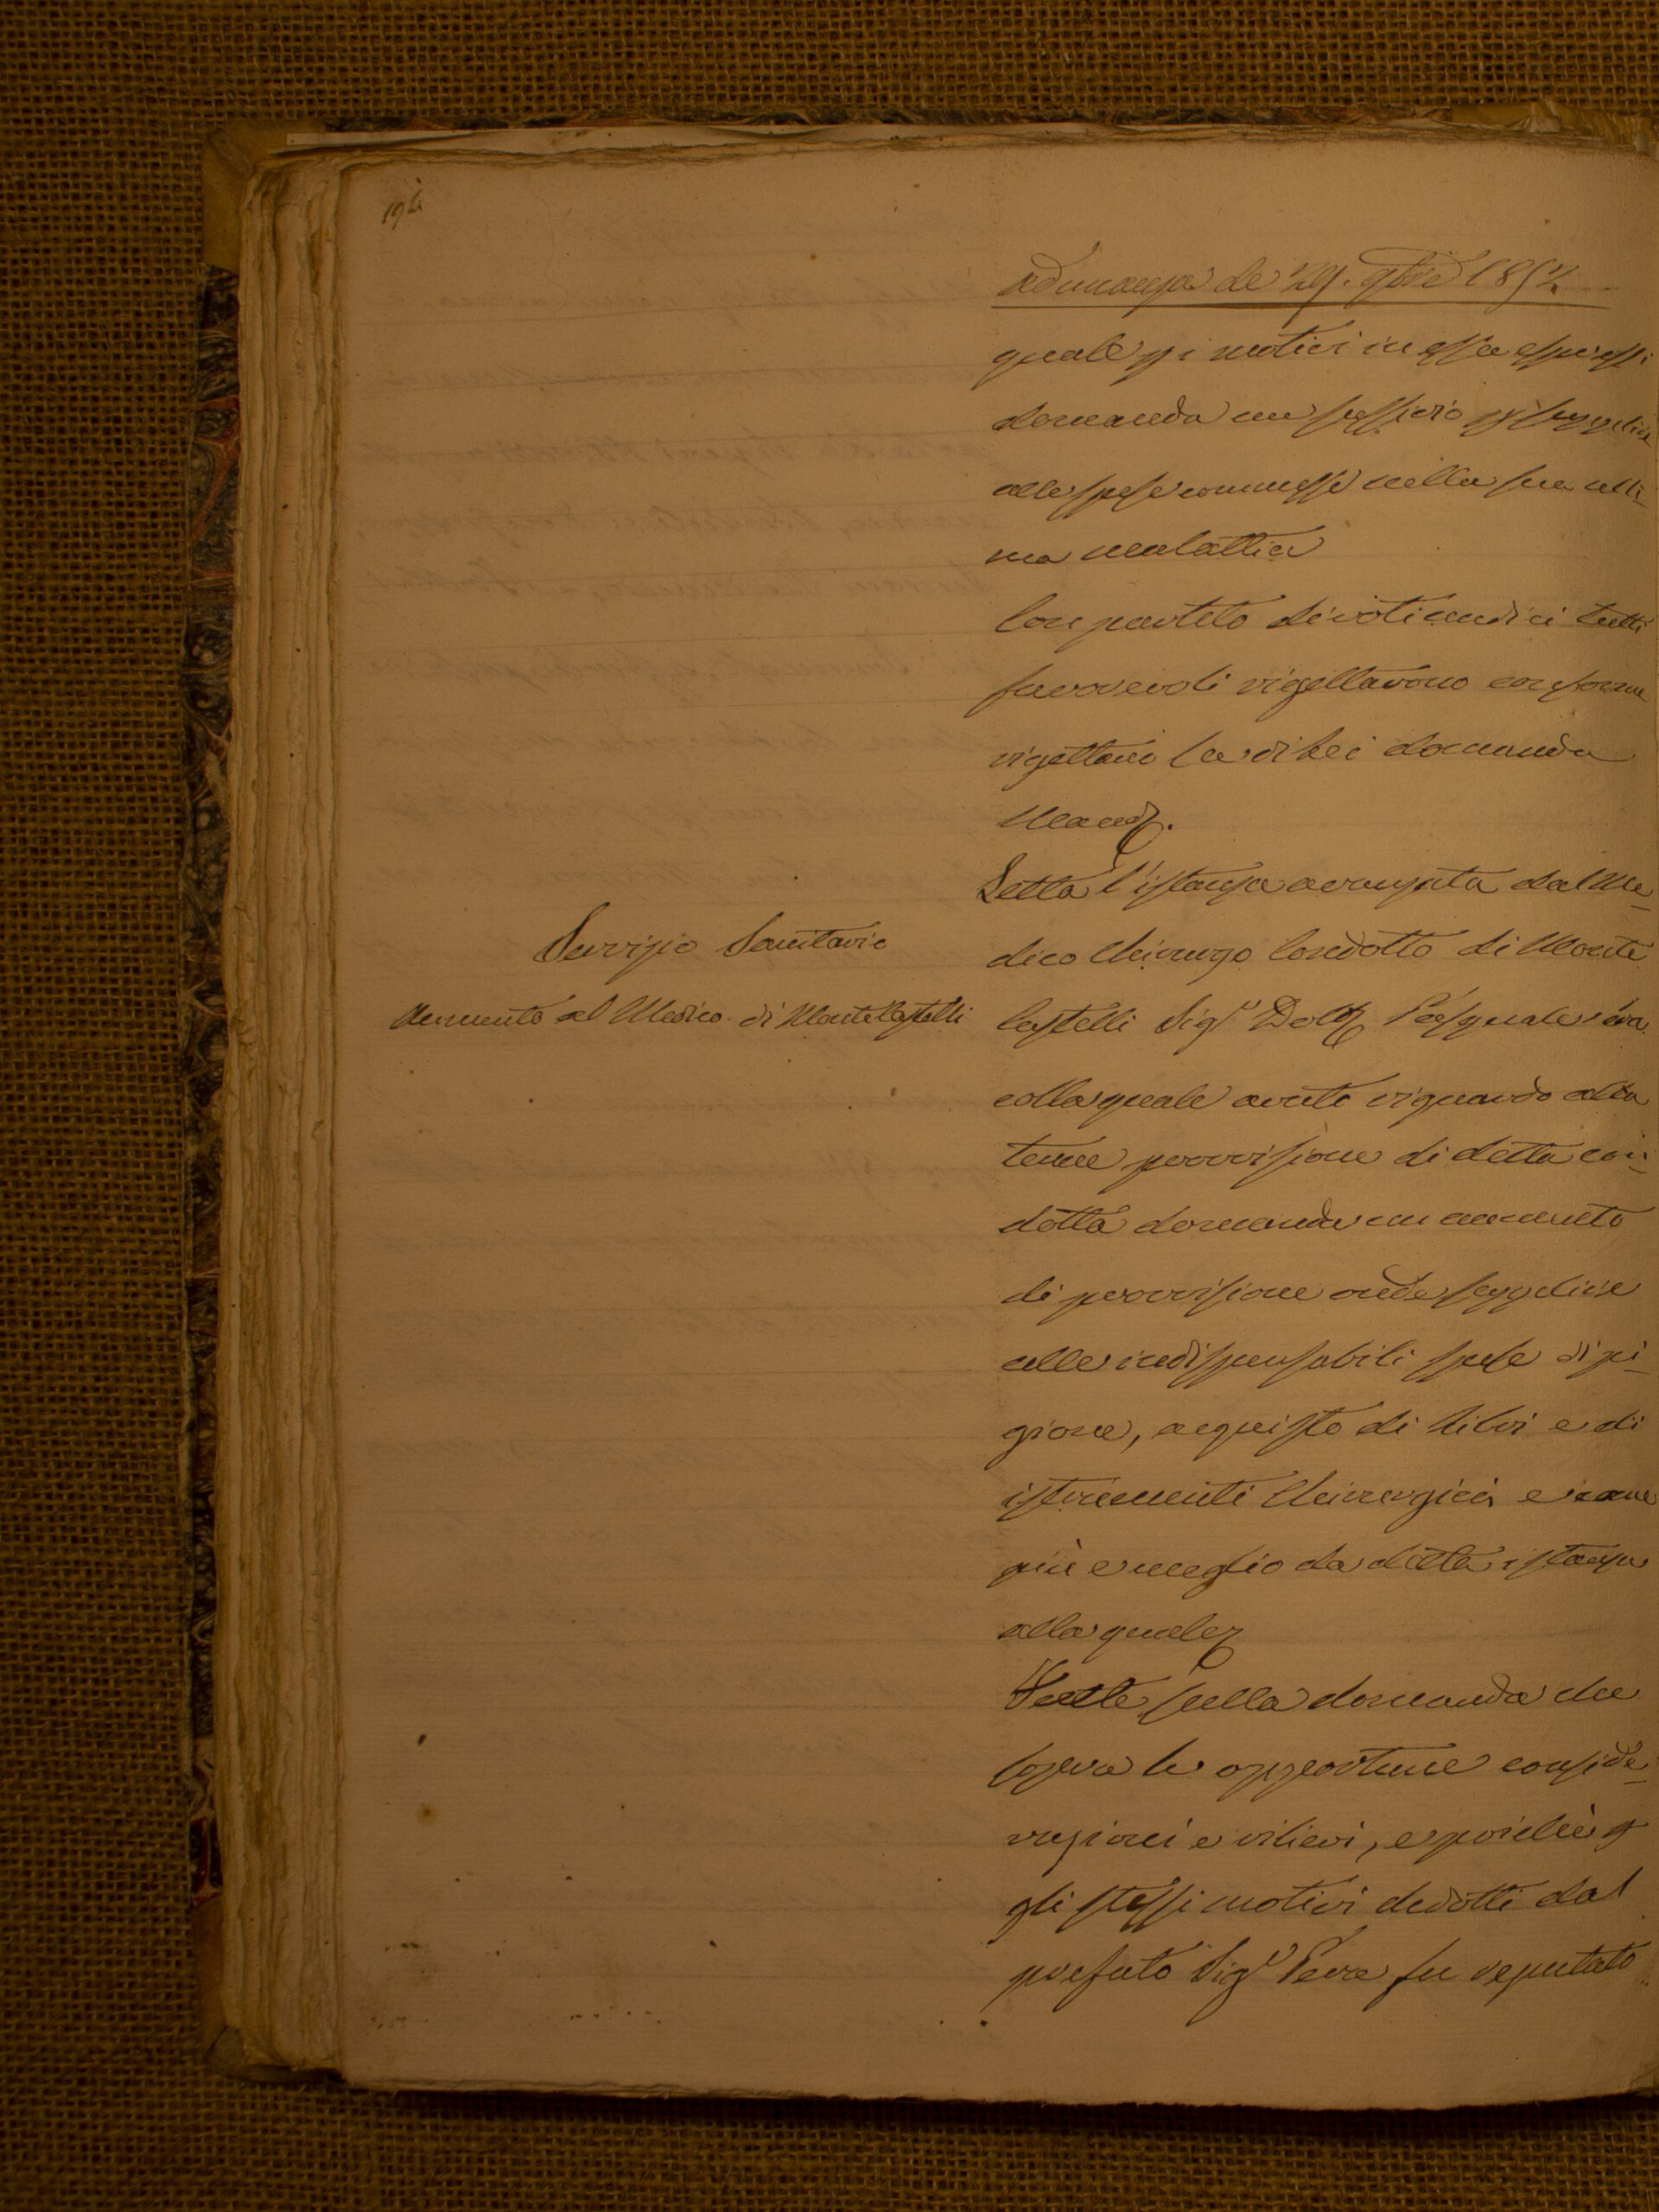 Adunanza de 29. 9bre 185
quale p i motivi in essa espressi
domanda un sussidio p supplire
alle spese commesse nella sua ulti-
ma malattia
Con partito di voti undici tutti
favorevoli rigettarono conforme
rigettano la di Lei domanda
Mand.
Letta l'istanza avanzata dal Me-
dico Chirurgo Condotto di Monte
Servizio Sanitario
Aumento al Medico di Monte Castelli
Castelli Sigr Dott Pasquale
colla quale avuto riguardo alla
tenue provvisione di detta con-
dotta domanda un aumento
di provvisione onde supplire
alle indispensabili spese di pi-
gione, acquisto di libri e di
istrumenti Chirurgici e come
più e meglio da detta istanza
alla quale
Fatte sulla domanda che
sopra le opportune conside-
razioni e rilievi, e poichè p
gli stessi motivi dedotti dal
prefato Sigr Peva fu reputato